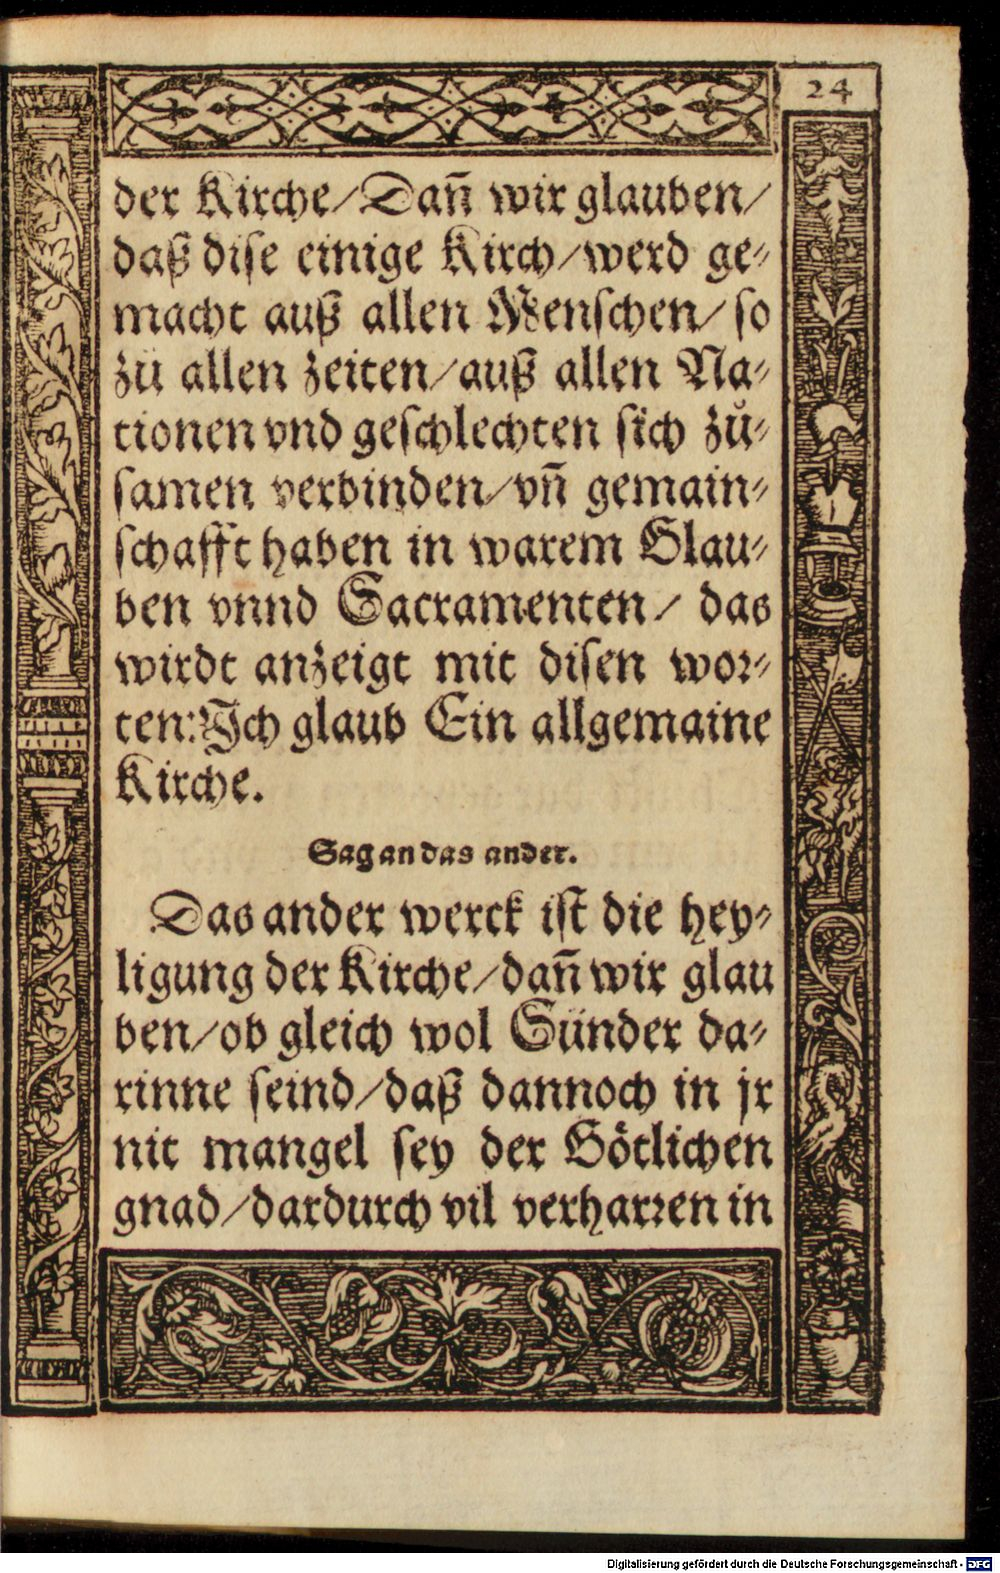 24
der Kirche/Dañ wir glauben/
daß dise einige Kirch/werd ge⸗
macht auß allen Menschen/so
zů allen zeiten/auß allen Na⸗
tionen vnd geschlechten sich zů⸗
samen verbinden/vñ gemain⸗
schafft haben in warem Glau⸗
ben vnnd Sacramenten/ das
wirdt anzeigt mit disen wor⸗
ten: Ich glaub Ein allgemaine
Kirche.
Sag an das ander.
Das ander werck ist die hey⸗
ligung der Kirche/dañ wir glau
ben/ob gleich wol Sünder da⸗
rinne seind/daß dannoch in jr
nit mangel sey der Götlichen
gnad/dardurch vil verharren in
Digitalisierung gefördert durch die Deutsche Forschungsgemeinschaft - DFG